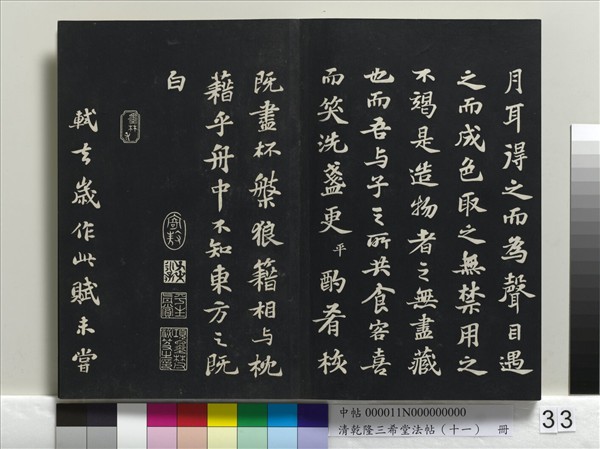 月耳得之而為聲目遇
之而成色取之無禁用之
不竭是造物者之無盡藏
也而吾与子之所共食客喜
而笑洗盞更平酌肴核
既盡杯槃狼籍相与枕
藉乎舟中不知東方之既
白
軾去歲作此賦未嘗
中帖 000011N000000000
清乾隆三希堂法帖(十一) 冊
33